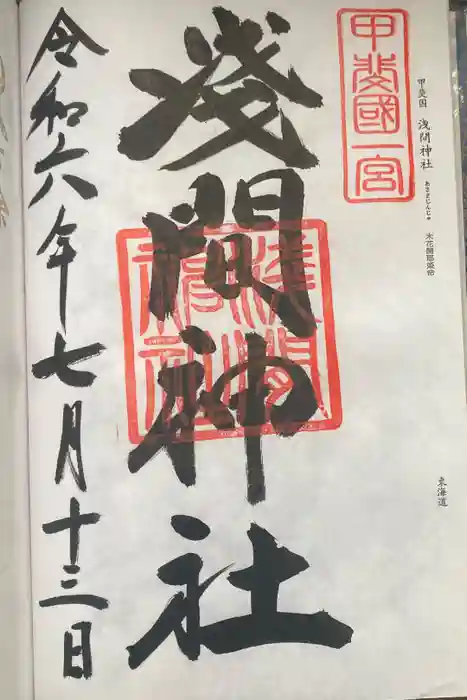 甲斐国 浅間神社 あさまじんじゃ 木花開耶姫命
東海道
甲斐國一宮
淺間神社
淺間神社
令和六年七月十三日